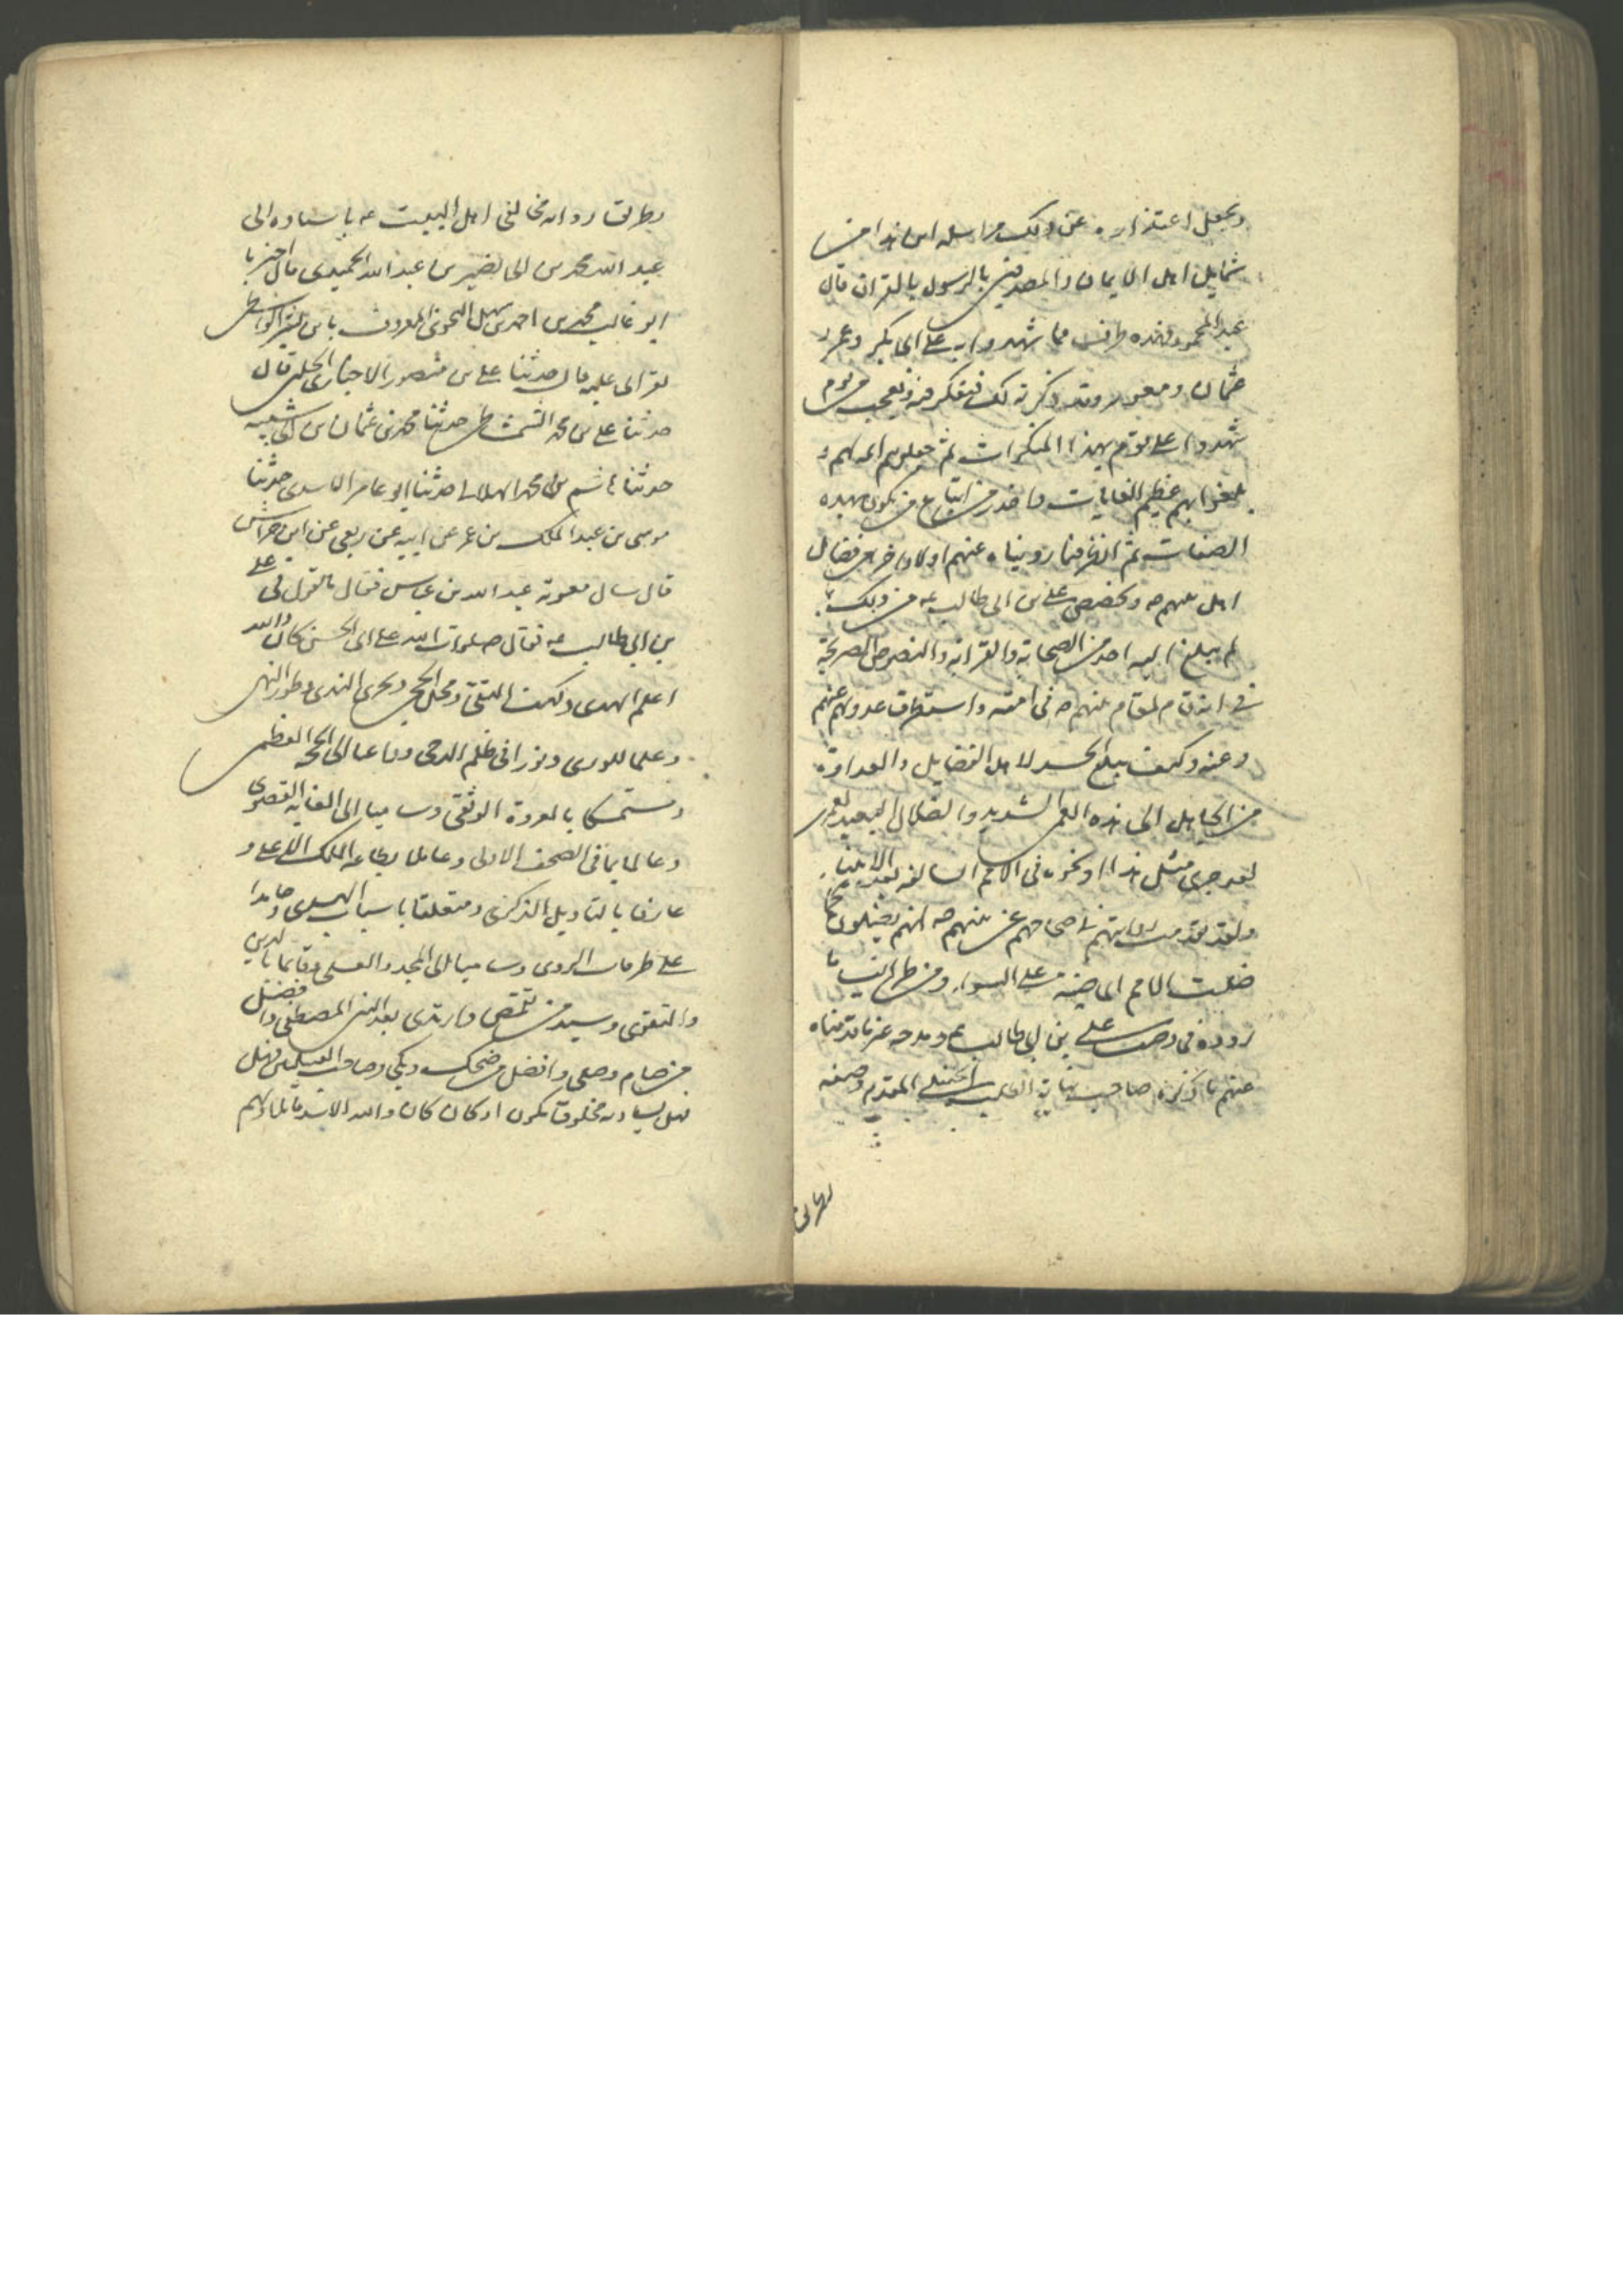 ويجعل اعتذاره عن ذلك مراسله اين هذا من
شمايل اهل الايمان والمصدقين بالرسول بالقران قال
عبد المحمود فهذه طرف مما شهدوا به على ابى بكر وعمر و
عثمان ومعوية وقد ذكرته لك فتفكر فيه وتعجب من قوم
شهدوا على قوم بهذا المنكرات ثم جعلوهم ائمة لهم و
بلغوا بهم عظيم الغايات فاحذر من اتباع من يكون بهذه
الصفات ثم انظر فيما رويناه عنهم اولا واخرا من فضائل
اهل بيت نبيهم صه وتخصص على بن ابى طالب عه من ذلك بما
لم يبلغ اليه احد من الصحابة والقرابة والنصوص الصريحة
فى انه قام مقام نبيهم صه فى امته واستطرف عدولهم عنهم
وعنه وكيف يبلغ الحسد لاهل الفضايل والعداوة
من الجاهل الى هذه العمى الشديد والضلال البعيد لعمرى
لقد جرى مثل هذا او نحوه فى الامم السالفة بعد الانبياء
ولقد تقدمت روايتهم فى صحاحهم عن نبيهم صه انهم يضلون كما
ضلت الامم الماضية على السواء ومن طرائف ما
رووه فى وصف على بن ابى طالب ع ومدحه غير ما قدمناه
عنهم ما ذكره صاحب نهاية الطلب الحنبلى المقدم وصفه
بطرائف رواة مخالفى اهل البيت عه باسناده الى
عبد الله محمد بن ابى نصير بن عبد الله الحميدى قال اخبرنا
ابو غالب محمد بن احمد بن سهل النحوى المعروف بابن بشر الواسطى
بقراتى عليه قال حدثنا على بن منصور الاخبارى الحلبى قال
حدثنا على بن محمد الشمشاطى حدثنا محمد بن عثمان بن ابى شيبه
حدثنا هاشم بن محمد الهلالى حدثنا ابو عامر الاسدى حدثنا
موسى بن عبد الملك بن عمر عن ابيه عن ربعى عن ابن حراش
قال سال معوية عبد الله بن عباس فقال ما تقول فى على
بن ابى طالب عه فقال صلوات الله على ابى الحسن كان والله
اعلم الهدى وكهف التقى ومحل الحجى وبحر الندى وطور النهى
وعلما للورى ونورا فى ظلم الدجى وداعيا الى المحجة العظمى
ومستمسكا بالعروة الوثقى وساميا الى الغاية القصوى
وعالما بما فى الصحف الاولى وعاملا بطاعة الملك الاعلى و
عارفا بالتاويل والذكرى ومتعلقا باسباب الهدى وحايدا
على طرقات الردى وساميا الى المجد والعلى وقايما بالدين
والتقوى وسيد من تقمص وارتدى بعد النبى المصطفى وافضل
من صام وصلى وافضل من ضحك وبكى وصاحب القبلتين فهل
فهل يساويه مخلوق يكون او كان كان والله الاسد قاتلا ولهم